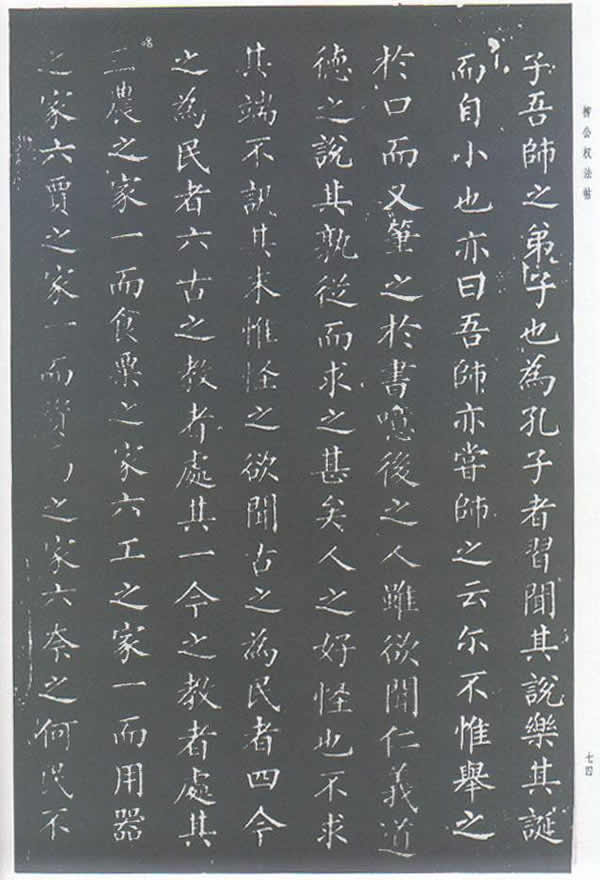 柳公权法帖
子吾師之弟子也為孔子者習聞其說樂其誕
而自小也亦曰吾師亦嘗師之云尓不惟舉之
扵口而又筆之扵書噫後之人雖欲聞仁義道
徳之說其孰從而求之甚矣人之好怪也不求
其端不訊其末惟怪之欲聞古之為民者四今
之為民者六古之教者處其一今之教者處其
三農之家一而食粟之家六工之家一而用器
之家六賈之家一而資之家六奈之何民不
七四